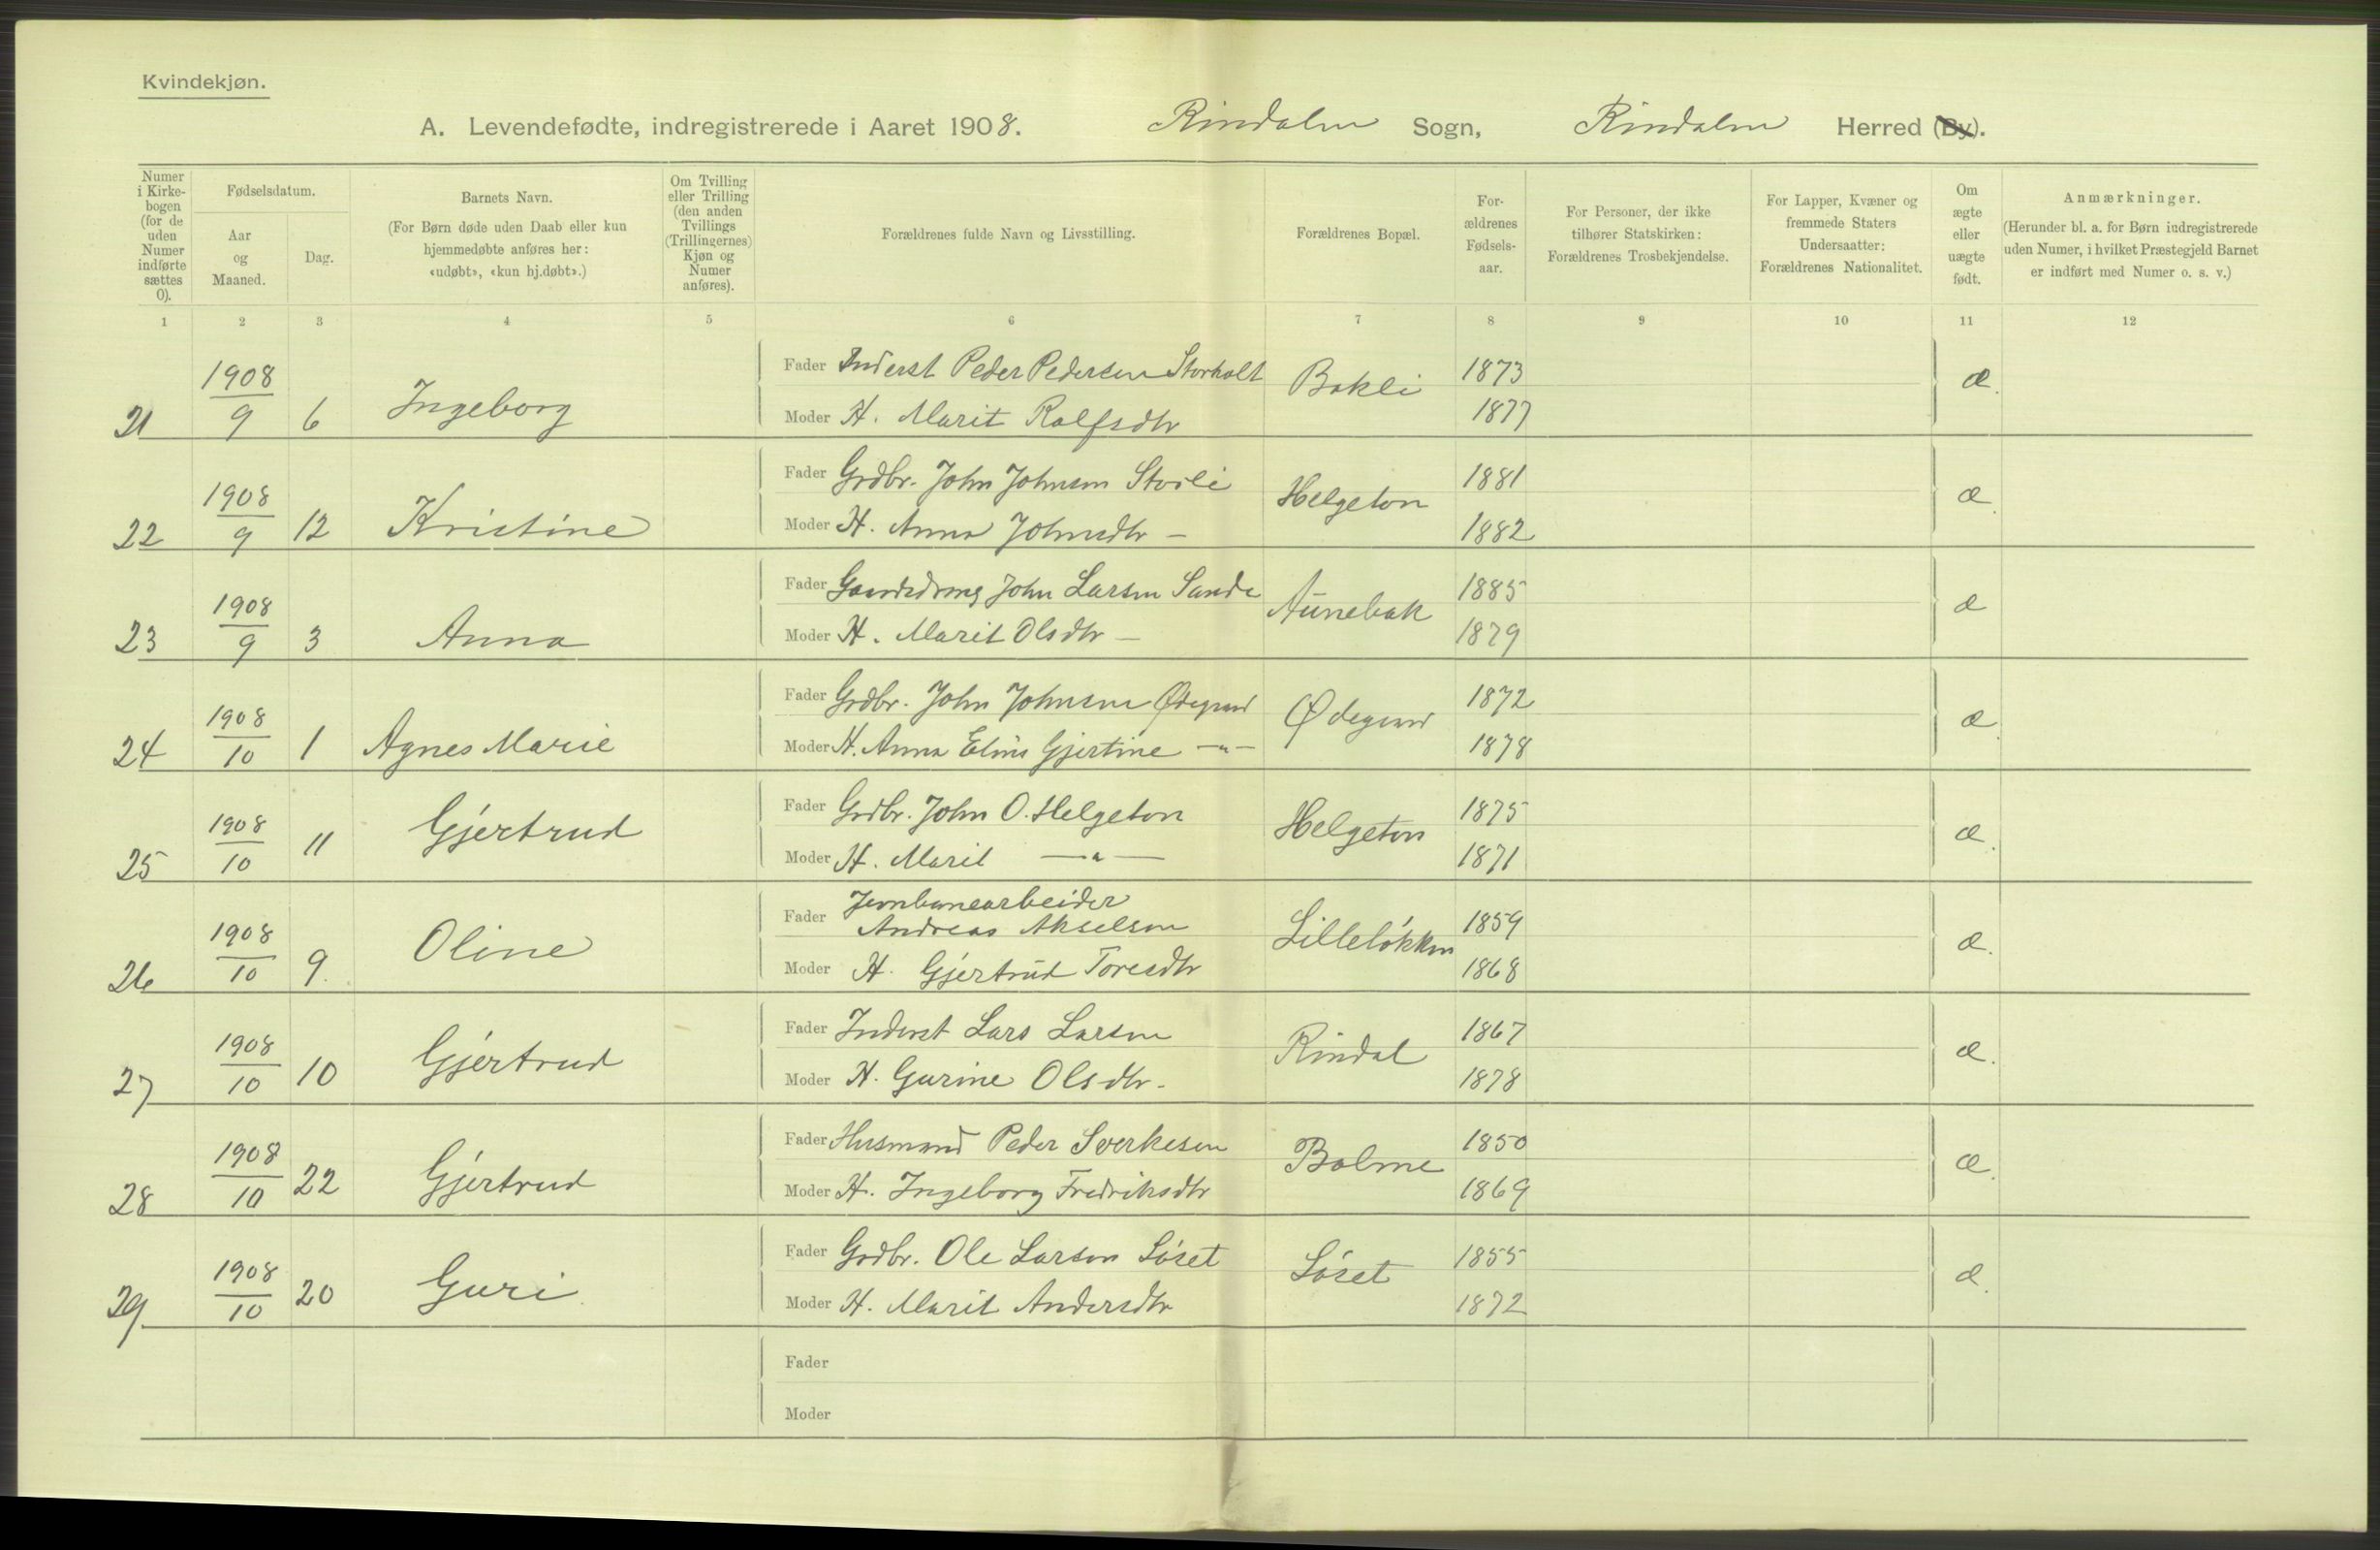 Kvindekjøn.
A. Levendefødte, indregistrerede i Aaret 1908. Rindalen Sogn, Rindalen Herred (By).
Numer i Kirkebogen (for de uden Numer indførte sættes 0).
Fødselsdatum.
Aar og Maaned.
Dag.
Barnets Navn.
(For Børn døde uden Daab eller kun hjemmedøbte anføres her: «udøbt», «kun hj.døbt».)
Om Tvilling eller Trilling (den anden Tvillings (Trillingernes) Kjøn og Numer anføres).
Forældrenes fulde Navn og Livsstilling.
Forældrenes Bopæl.
Forældrenes Fødselsaar.
For Personer, der ikke tilhører Statskirken: Forældrenes Trosbekjendelse.
For Lapper, Kvæner og fremmede Staters Undersaatter: Forældrenes Nationalitet.
Om ægte eller uægte født.
Anmærkninger.
(Herunder bl. a. for Børn indregistrerede uden Numer, i hvilket Præstegjeld Barnet er indført med Numer o. s. v.)
1 2 3 4 5 6 7 8 9 10 11 12
21 1908 9 6 Ingeborg Fader Inderst Peder Pedersen Storholt Bakli 1873 æ.
Moder H. Marit Rolfsdtr 1877
22 1908 9 12 Kristine Fader Grdbr. John Johnsen Stoili Helgeton 1881 æ.
Moder H. Anna Johnsdtr — 1882
23 1908 9 3 Anna Fader Gaardsdreng John Larsen Sande Aunebak 1885 æ
Moder H. Marit Olsdtr — 1879
24 1908 10 1 Agnes Marie Fader Grdbr. John Johnsen Ødegaard Ødegaard 1872 æ.
Moder H. Anna Elins Gjertine —"— 1878
25 1908 10 11 Gjertrud Fader Grdbr. John O. Helgeton Helgeton 1875 æ.
Moder H. Marit —"— 1871
26 1908 10 9. Oline Fader Jernbanearbeider
Andreas Akselsen Lilleløkken 1859 æ.
Moder H. Gjertrud Toresdtr 1868
27 1908 10 10 Gjertrud Fader Inderst Lars Larsen Rindal 1867 æ.
Moder H. Gurine Olsdtr. 1878
28 1908 10 22 Gjertrud Fader Husmand Peder Sverkesen Bolme 1850 æ.
Moder H. Ingeborg Fredriksdtr 1869
29 1908 10 20 Guri Fader Grdbr. Ole Larsen Løset Løset 1855 æ.
Moder H. Marit Andersdtr 1872
Fader
Moder